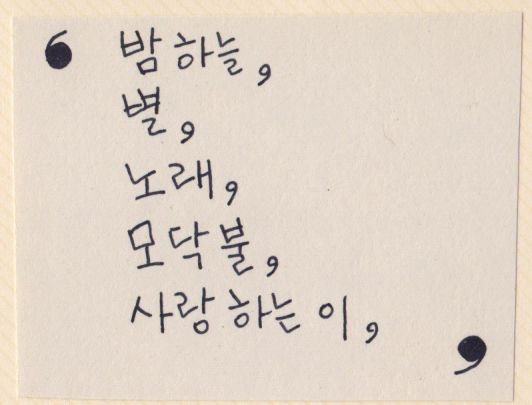 ‘ 밤 하늘,
별,
노래,
모닥불,
사랑하는 이, ’